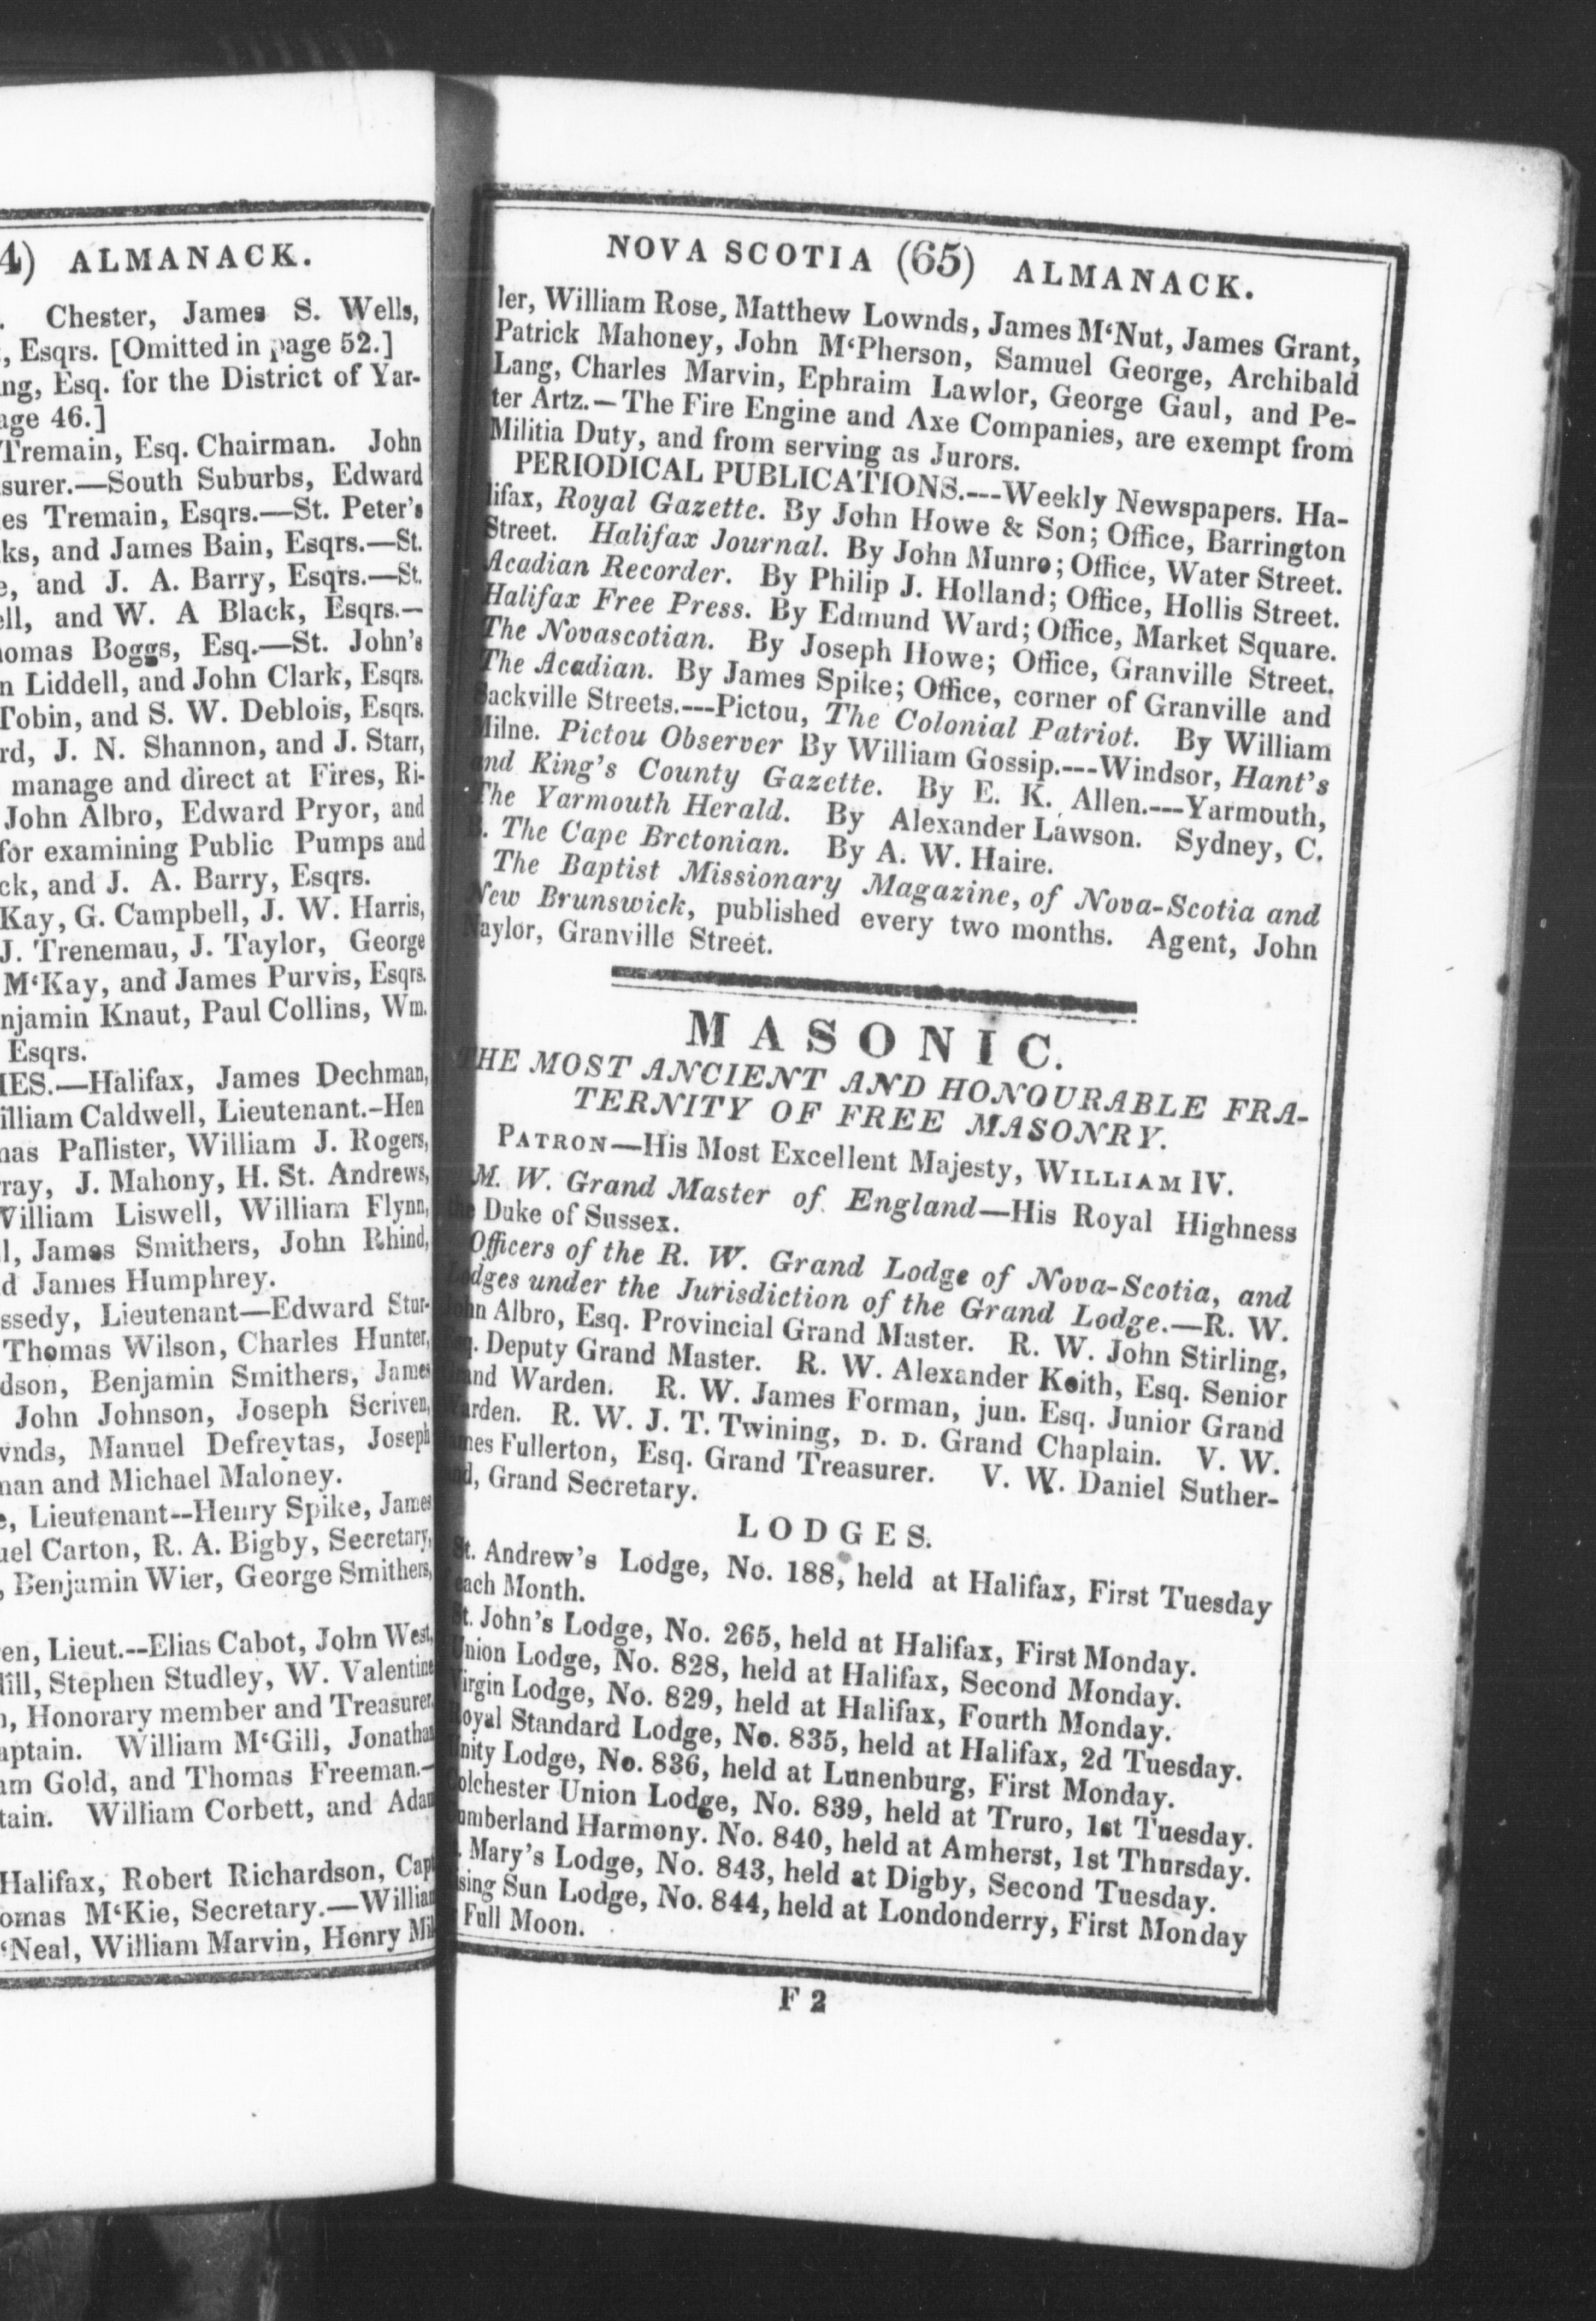 4) ALMANACK.
Chester, James S. Wells,
Esqrs. [Omitted in page 52.]
Esq. for the District of Yar-
46.]
Tremain, Esq. Chairman. John
—South Suburbs, Edward
Tremain, Esqrs.—St. Peter's
and James Bain, Esqrs.—St.
and J. A. Barry, Esqrs.—St.
and W. A Black, Esqrs.—
Boggs, Esq.—St. John's
Liddell, and John Clark, Esqrs.
Tobin, and S. W. Deblois, Esqrs.
J. N. Shannon, and J. Starr,
manage and direct at Fires, Ri-
John Albro, Edward Pryor, and
for examining Public Pumps and
and J. A. Barry, Esqrs.
Kay, G. Campbell, J. W. Harris,
J. Trenemau, J. Taylor, George
M‘Kay, and James Purvis, Esqrs.
Knaut, Paul Collins, Wm.
Esqrs.
—Halifax, James Dechman,
William Caldwell, Lieutenant.-Hen
Pallister, William J. Rogers,
J. Mahony, H. St. Andrews,
William Liswell, William Flynn,
James Smithers, John Rhind,
James Humphrey.
Lieutenant—Edward Stur-
Thomas Wilson, Charles Hunter,
Benjamin Smithers, James
John Johnson, Joseph Scriven,
Manuel Defreytas, Joseph
and Michael Maloney.
Lieutenant--Henry Spike, James
Carton, R. A. Bigby, Secretary,
Benjamin Wier, George Smithers,
Lieut.--Elias Cabot, John West,
Stephen Studley, W. Valentine
Honorary member and Treasurer.
William M‘Gill, Jonathan
Gold, and Thomas Freeman.-
William Corbett, and Adam
Halifax, Robert Richardson, Capt
M‘Kie, Secretary.—William
‘Neal, William Marvin, Henry Mil
NOVA SCOTIA (65) ALMANACK.
ler, William Rose, Matthew Lownds, James M‘Nut, James Grant,
Patrick Mahoney, John M‘Pherson, Samuel George, Archibald
Lang, Charles Marvin, Ephraim Lawlor, George Gaul, and Pe-
ter Artz.—The Fire Engine and Axe Companies, are exempt from
Militia Duty, and from serving as Jurors.
PERIODICAL PUBLICATIONS.---Weekly Newspapers. Ha-
lifax, Royal Gazette. By John Howe & Son; Office, Barrington
Street. Halifax Journal. By John Munro; Office, Water Street.
Acadian Recorder. By Philip J. Holland; Office, Hollis Street.
Halifax Free Press. By Edmund Ward; Office, Market Square.
The Novascotian. By Joseph Howe; Office, Granville Street.
The Acadian. By James Spike; Office, corner of Granville and
Sackville Streets.---Pictou, The Colonial Patriot. By William
Milne. Pictou Observer By William Gossip.---Windsor, Hant's
and King's County Gazette. By E. K. Allen.---Yarmouth,
The Yarmouth Herald. By Alexander Lawson. Sydney, C.
B. The Cape Bretonian. By A. W. Haire.
The Baptist Missionary Magazine, of Nova-Scotia and
New Brunswick, published every two months. Agent, John
Naylor, Granville Street.
MASONIC.
THE MOST ANCIENT AND HONOURABLE FRA-
TERNITY OF FREE MASONRY.
PATRON—His Most Excellent Majesty, WILLIAM IV.
M. W. Grand Master of England—His Royal Highness
the Duke of Sussex.
Officers of the R. W. Grand Lodge of Nova-Scotia, and
Lodges under the Jurisdiction of the Grand Lodge.—R. W.
John Albro, Esq. Provincial Grand Master. R. W. John Stirling,
Esq. Deputy Grand Master. R. W. Alexander Keith, Esq. Senior
Grand Warden. R. W. James Forman, jun. Esq. Junior Grand
Warden. R. W. J. T. Twining, D. D. Grand Chaplain. V. W.
James Fullerton, Esq. Grand Treasurer. V. W. Daniel Suther-
land, Grand Secretary.
LODGES.
St. Andrew's Lodge, No. 188, held at Halifax, First Tuesday
each Month.
St. John's Lodge, No. 265, held at Halifax, First Monday.
Union Lodge, No. 828, held at Halifax, Second Monday.
Virgin Lodge, No. 829, held at Halifax, Fourth Monday.
Royal Standard Lodge, No. 835, held at Halifax, 2d Tuesday.
Unity Lodge, No. 836, held at Lunenburg, First Monday.
Colchester Union Lodge, No. 839, held at Truro, 1st Tuesday.
Cumberland Harmony. No. 840, held at Amherst, 1st Thursday.
Mary's Lodge, No. 843, held at Digby, Second Tuesday.
Rising Sun Lodge, No. 844, held at Londonderry, First Monday
Full Moon.
F 2